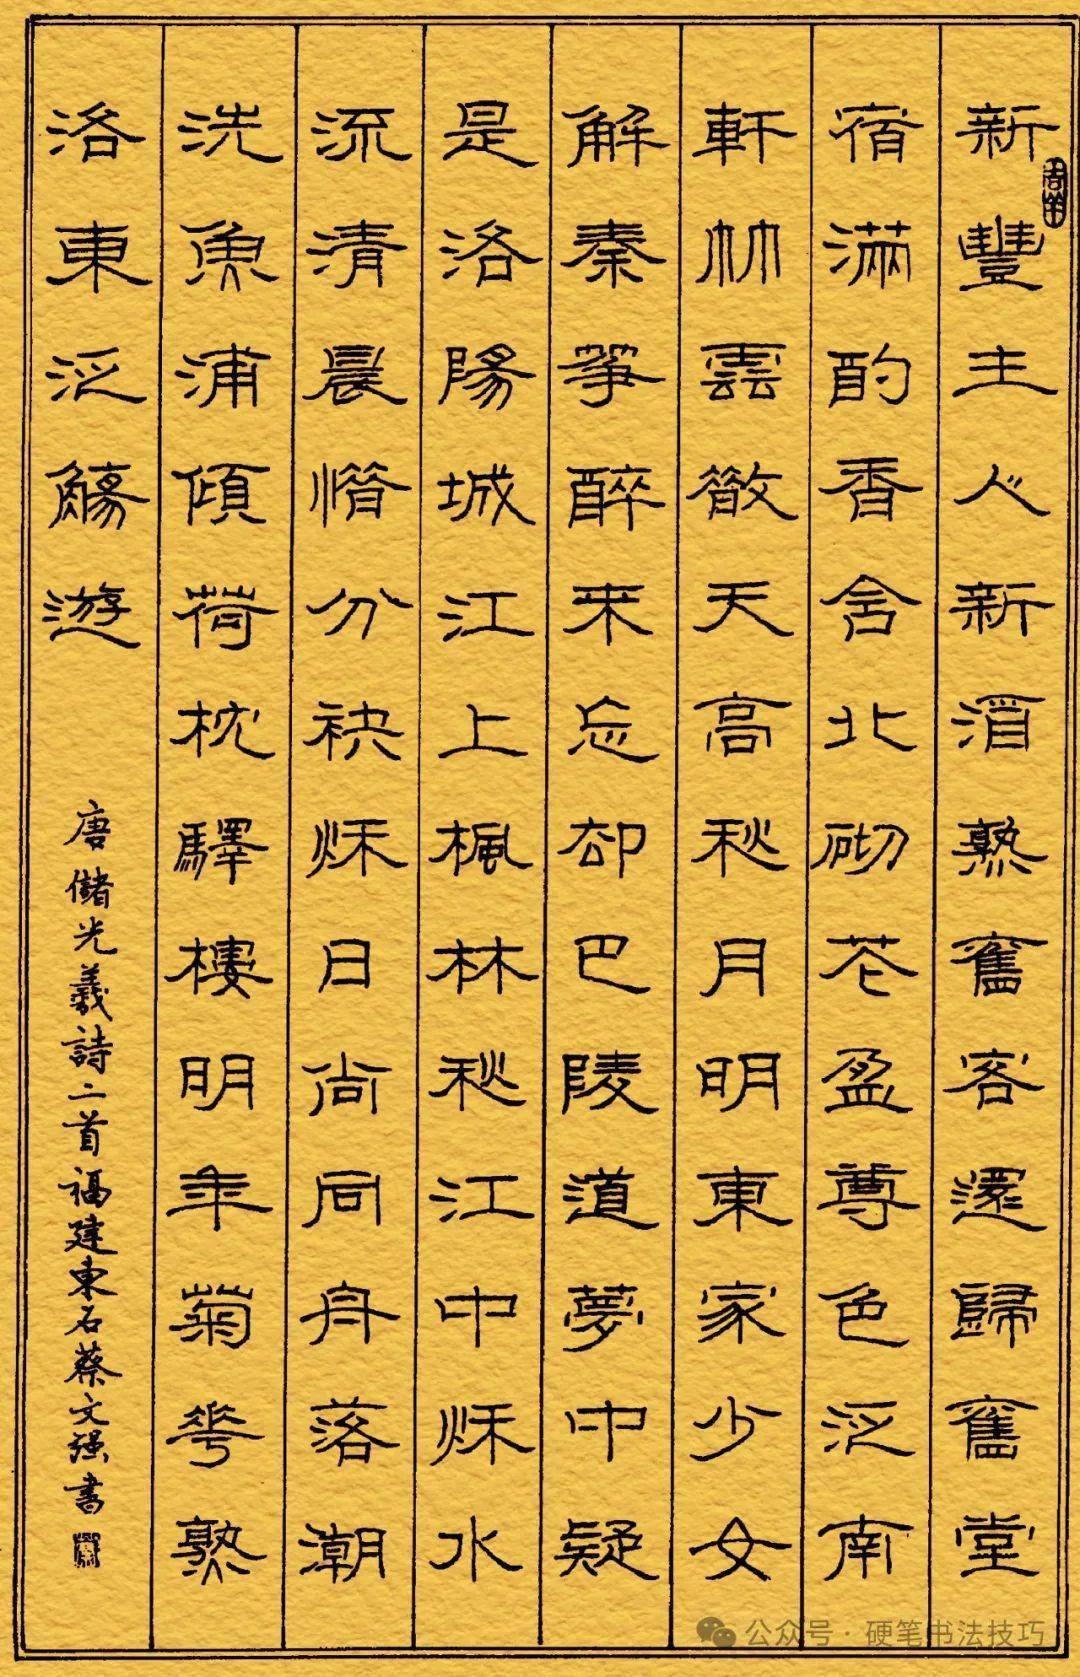 新豐主人新酒熟舊客還歸舊堂
宿滿酌香含北砌花盈尊色泛南
軒竹雲散天高秋月明東家少女
解秦箏醉來忘却巴陵道夢中疑
是洛陽城江上楓林秋江中秌水
流清晨惜分袂秌日尚同舟落潮
洗魚浦傾荷枕驛樓明年菊華熟
洛東泛觴遊
唐儲光羲詩二首福建東石蔡文强書
公众号·硬笔书法技巧